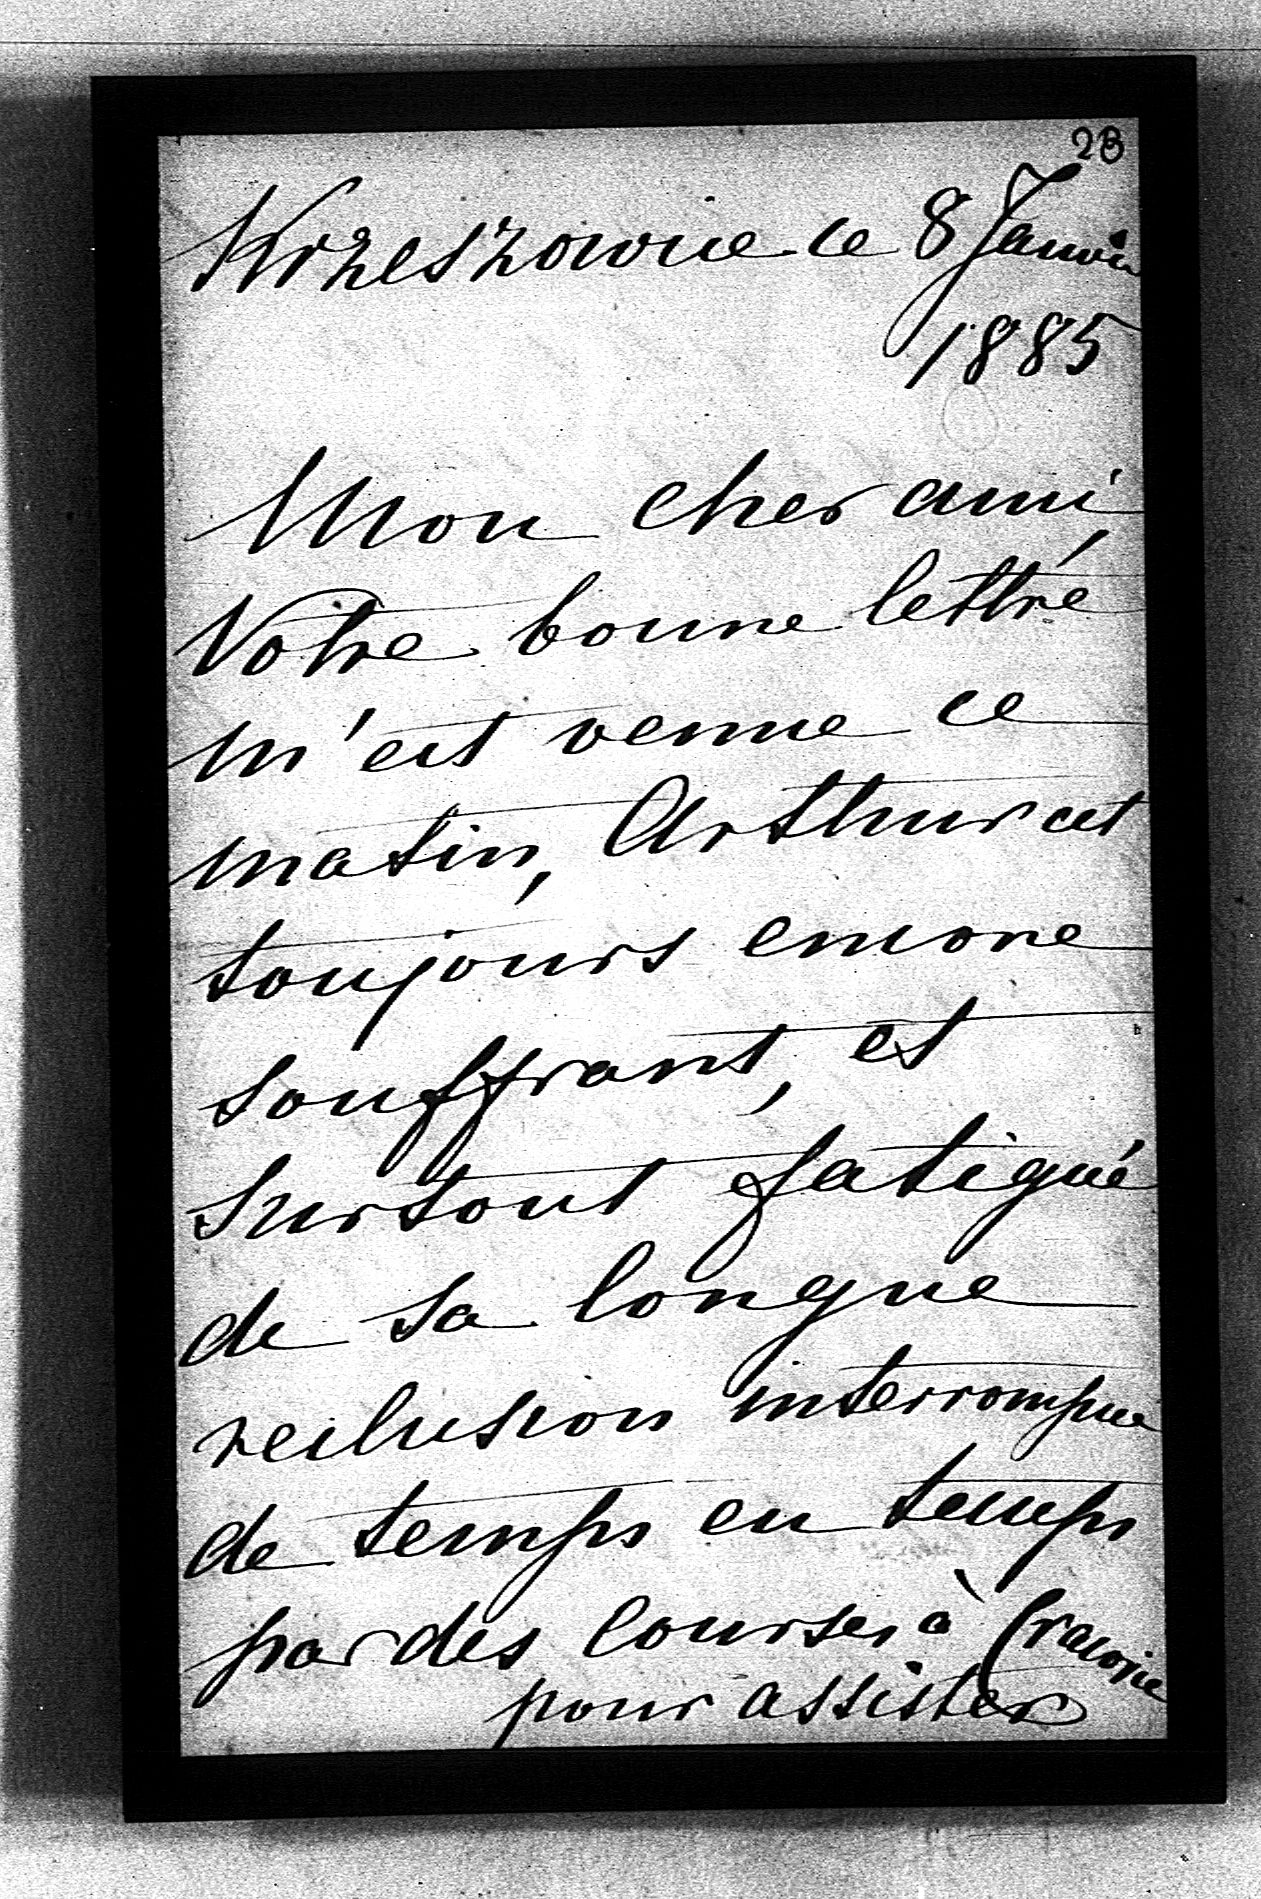 28
Krzeszowice le 8 Janvier
1885
Mon cher ami,
Votre bonne lettre
m'est venue ce
matin, Arthur est
toujours encore
souffrant, et
surtout fatigué
de sa longue
reclusion interrompue
de temps en temps
par des courses à Cracovie
pour assister